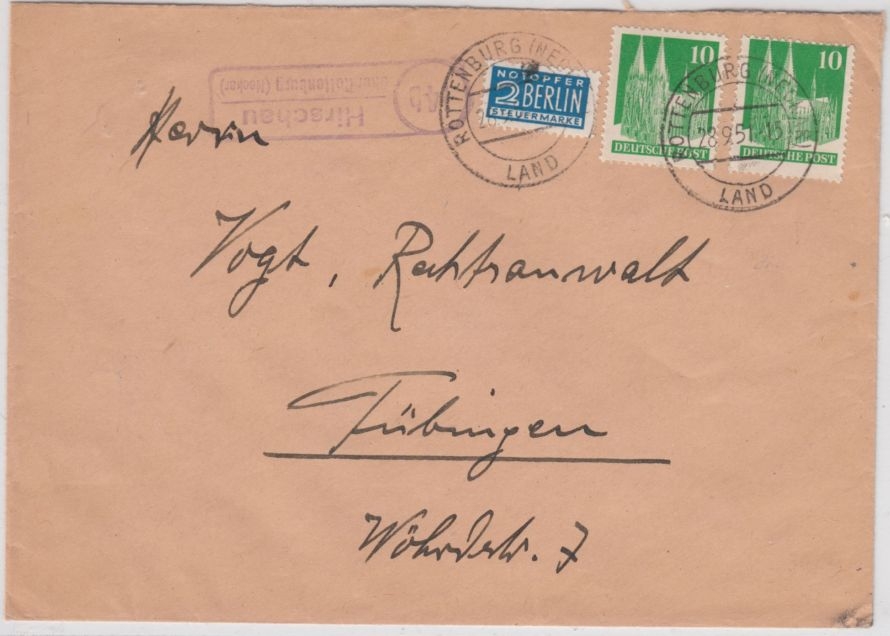 NOTOPFER
2 BERLIN
STEUERMARKE
10
DEUTSCHE POST
10
DEUTSCHE POST
ROTTENBURG (NECKAR)
LAND
ROTTENBURG (NECKAR)
28.9.51
LAND
Hirschau
über Rottenburg (Neckar)
Herrn
Vogt, Rechtsanwalt
Tübingen
Wöhrdstr. 7